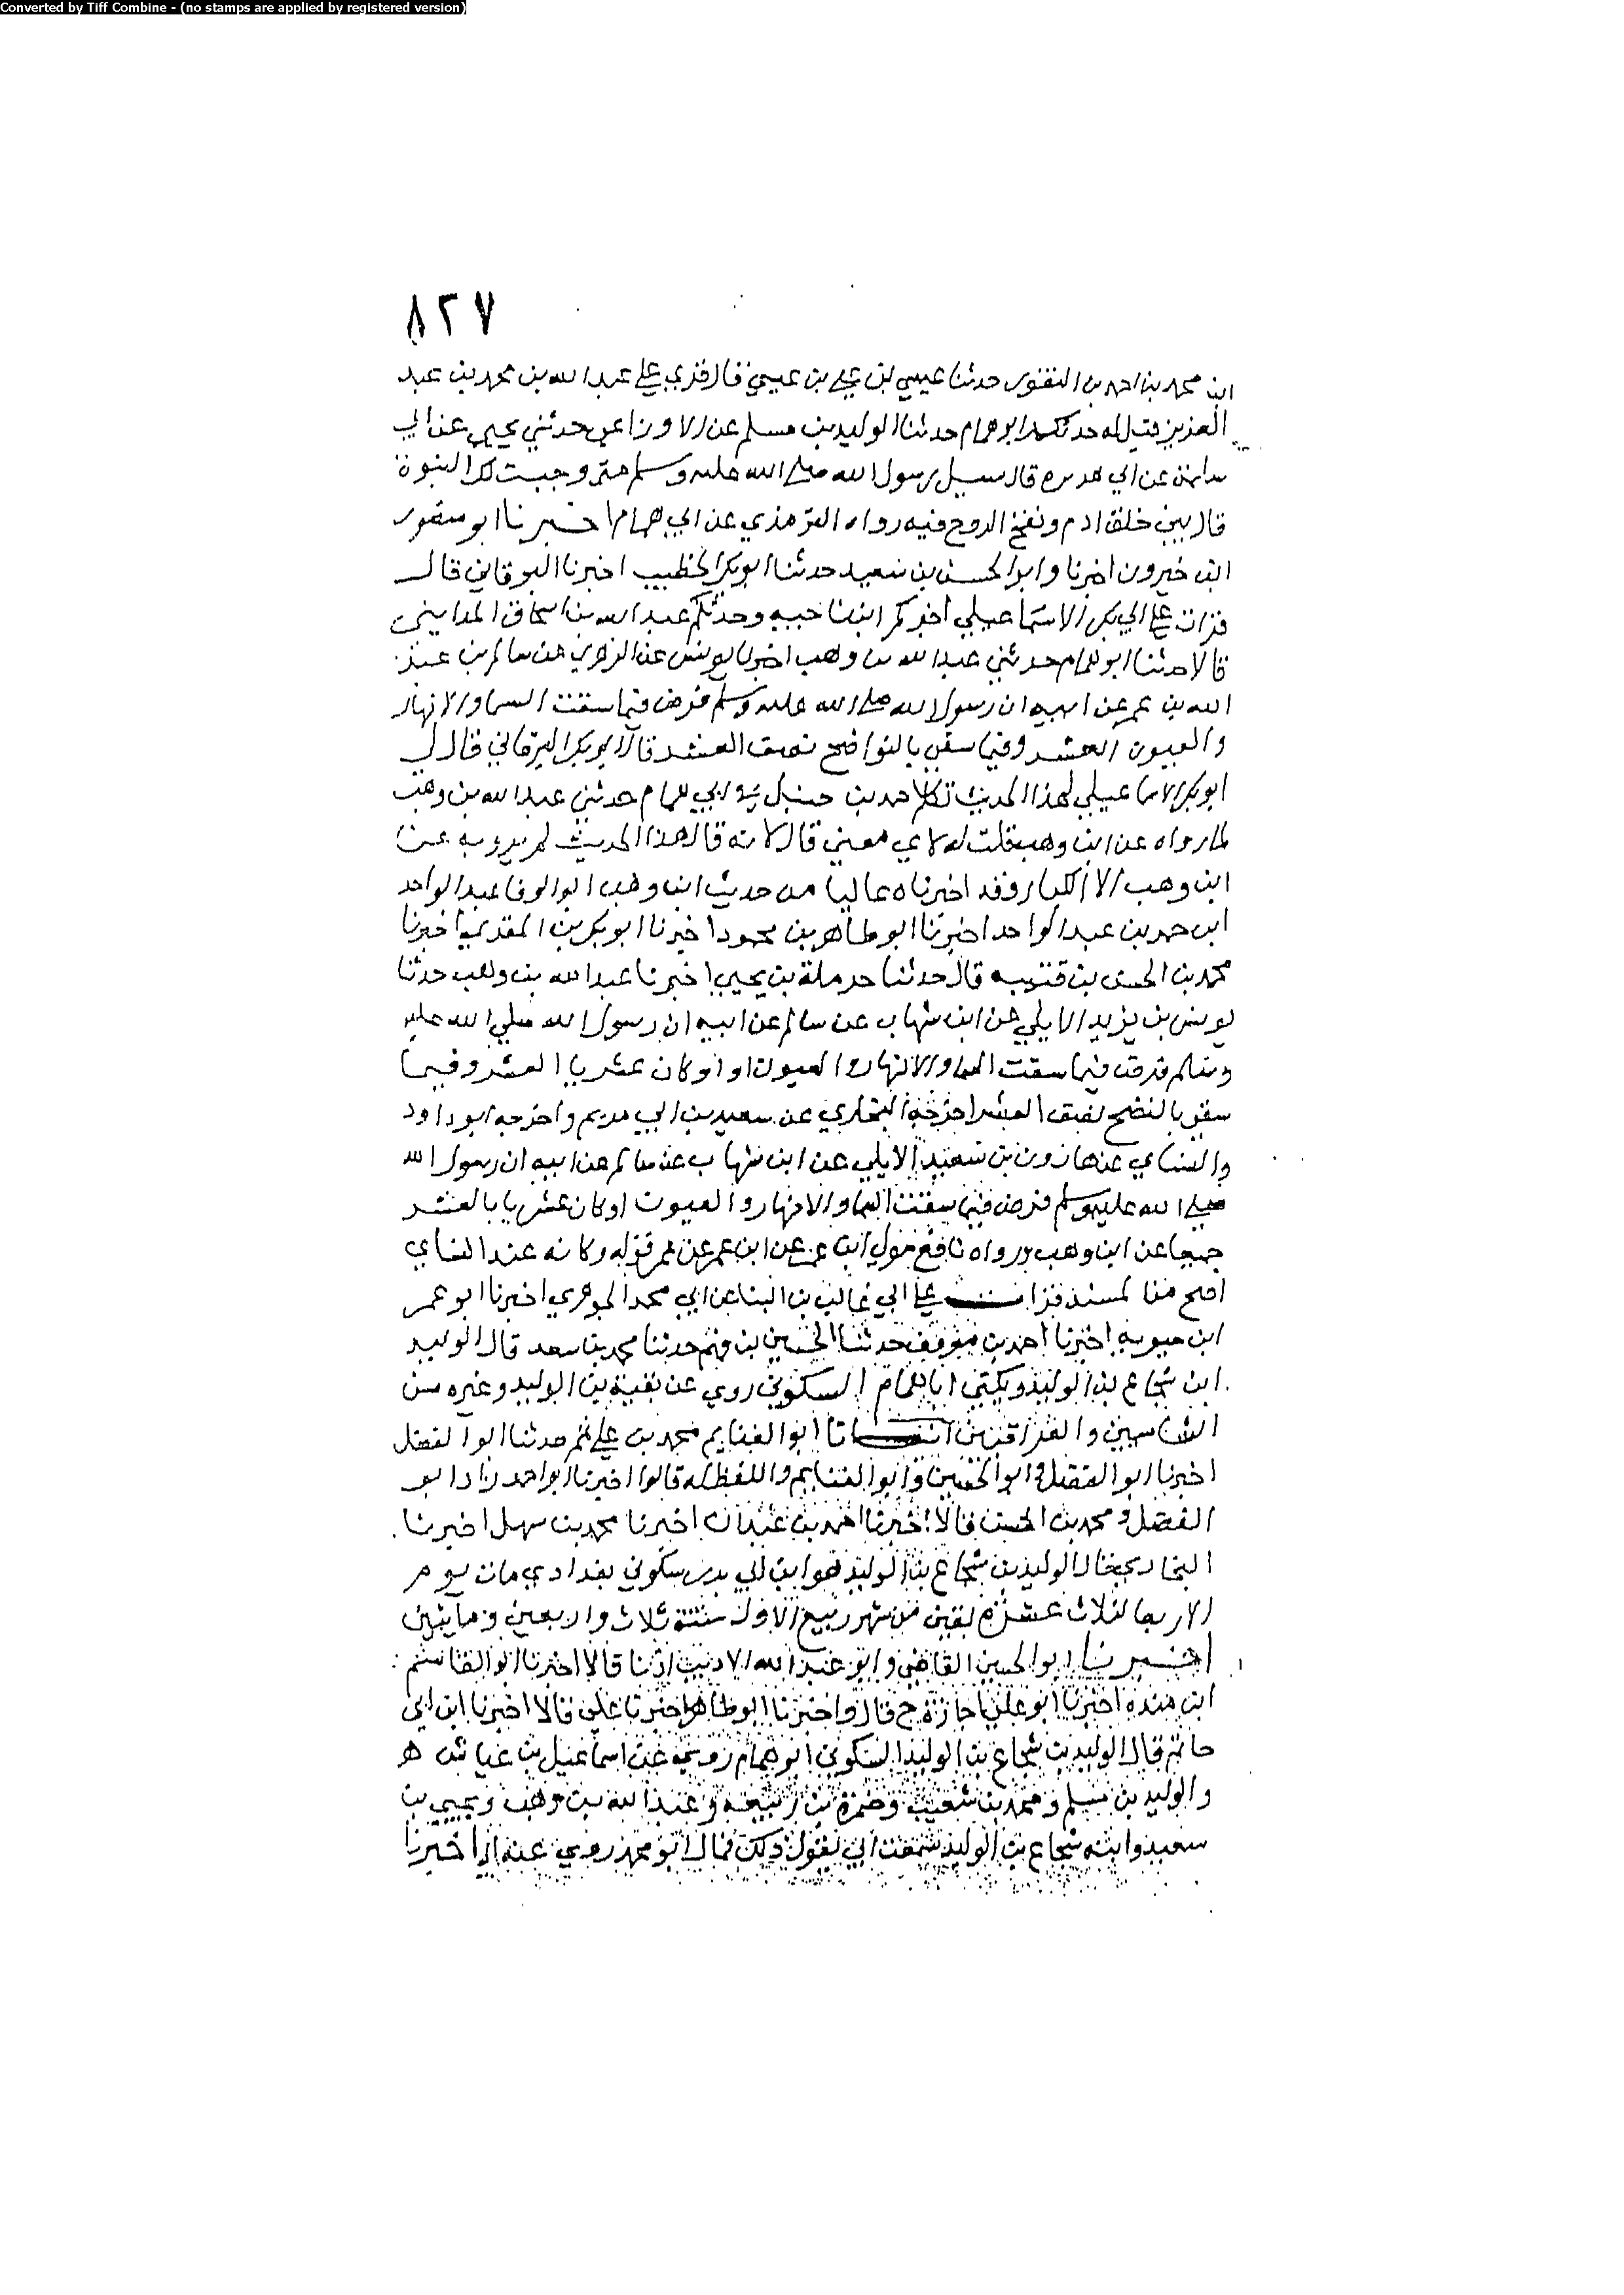 Converted by Tiff Combine - (no stamps are applied by registered version)
٨٢٧
ابن محمد بن احمد بن النقور حدثنا عيسي بن علي بن عيسي قال قري علي عبد الله بن محمد بن عبد
العزيز قيل له حدثكم ابو همام حدثنا الوليد بن مسلم عن الاوزاعي حدثني يحيي عن ابي
سلمة عن ابي هريرة قال سيل رسول الله صلي الله عليه وسلم متي وجبت لك النبوة
قال بين خلق ادم ونفخ الروح فيه رواه الترمذي عن ابي همام اخبرنا ابو منصور
ابن خيرون اخبرنا وابو الحسن بن سعيد حدثنا ابو بكر الخطيب اخبرنا البرقاني قال
قرات علي ابي بكر الاسماعيلي اخبركم ابن ناجيه وحدثكم عبد الله بن اسحاق المدايني
قالا حدثنا ابو همام حدثني عبد الله بن وهب اخبرنا يونس عن الزهري عن سالم بن عبد
الله بن عمر عن ابيه ان رسول الله صلي الله عليه وسلم فرض فيما سقت السما والانهار
والعيون العشر وفيما سقي بالنواضح نصف العشر قال ابو بكر البرقاني قال لي
ابو بكر الاسماعيلي لهذا الحديث تكلم احمد بن حنبل في ابي همام حدثني عبد الله بن وهب
لما رواه عن ابن وهب فقلت له لاي معني قال لانه قال هذا الحديث لم يرويه عن
ابن وهب الا الكبار وقد اخبرناه عاليا من حديث ابن وهب ابو الوفا عبد الواحد
ابن حمد بن عبد الواحد اخبرنا ابو طاهر بن محمود اخبرنا ابو بكر بن المقري اخبرنا
محمد بن الحسن بن قتيبه قال حدثنا حرملة بن يحيي اخبرنا عبد الله بن وهب حدثنا
يونس بن يزيد الايلي عن ابن شهاب عن سالم عن ابيه ان رسول الله صلي الله عليه
وسلم فرض فيما سقت السما والانهار والعيون او كان عشريا العشر وفيما
سقي بالنضح نصف العشر اخرجه البخاري عن سعيد بن ابي مريم واخرجه ابو داود
والنساي عن هارون بن سعيد الايلي عن ابن شهاب عن سالم عن ابيه ان رسول الله
صلي الله عليه وسلم فرض فيما سقت السما والانهار والعيون او كان عشريا بالعشر
جميعا عن ابن وهب ورواه نافع مولي ابن عمر عن ابن عمر عن عمر قوله وكانه عند النساي
اصح من المسند قرات علي ابي غالب بن البنا عن ابي محمد الجوهري اخبرنا ابو عمر
ابن حيويه اخبرنا احمد بن معروف حدثنا الحسين بن فهم حدثنا محمد بن سعد قال الوليد
ابن شجاع بن الوليد ويكني ابا همام السكوني روي عن بقية بن الوليد وغيره من
الشاميين والعراقيين انبانا ابو الغنايم محمد بن علي ثم حدثنا ابو الفضل
اخبرنا ابو الفضل وابو الحسين وابو الغنايم واللفظ له قالوا اخبرنا ابو احمد زاد ابو
الفضل ومحمد بن الحسن قالا اخبرنا احمد بن عبدان اخبرنا محمد بن سهل اخبرنا
البخاري قال الوليد بن شجاع بن الوليد هو ابن ابي بدر سكوني بغدادي مات يوم
الاربعا لثلاث عشرة بقين من شهر ربيع الاول سنة ثلاث واربعين ومايتين
اخبرنا ابو الحسين القاضي وابو عبد الله الاديب اذنا قالا اخبرنا ابو القاسم
ابن منده اخبرنا ابو علي اجازة ح قال واخبرنا ابو طاهر اخبرنا علي قالا اخبرنا ابن ابي
حاتم قال الوليد بن شجاع بن الوليد السكوني ابو همام روي عن اسماعيل بن عياش
والوليد بن مسلم ومحمد بن شعيب وضمرة بن ربيعه وعبد الله بن وهب ويحيي بن
سعيد وابنه شجاع بن الوليد سمعت ابي يقول ذلك قال ابو محمد روي عنه اخبرنا